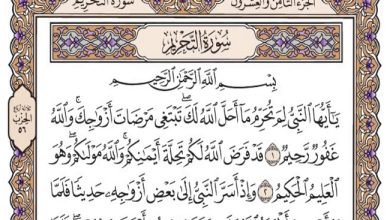 الجزء الثامن والعشرون
سورة التحريم
سُورَةُ التَّحْرِيمِ
بِسْمِ اللَّهِ الرَّحْمَٰنِ الرَّحِيمِ
يَا أَيُّهَا النَّبِيُّ لِمَ تُحَرِّمُ مَا أَحَلَّ اللَّهُ لَكَ ۖ تَبْتَغِي مَرْضَاتَ أَزْوَاجِكَ ۚ وَاللَّهُ
غَفُورٌ رَّحِيمٌ ١ قَدْ فَرَضَ اللَّهُ لَكُمْ تَحِلَّةَ أَيْمَانِكُمْ ۚ وَاللَّهُ مَوْلَاكُمْ ۖ وَهُوَ
الْعَلِيمُ الْحَكِيمُ ٢ وَإِذْ أَسَرَّ النَّبِيُّ إِلَىٰ بَعْضِ أَزْوَاجِهِ حَدِيثًا فَلَمَّا
الحزب
٥٦